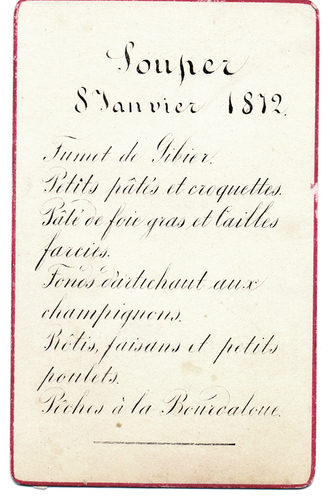 Souper
8 Janvier 1872.
Fumet de Gibier.
Petits pâtés et croquettes.
Pâté de foie gras et Cailles
farcies.
Fonds d'artichaut aux
champignons.
Rôtis, faisans et petits
poulets.
Pêches à la Bourdaloue.